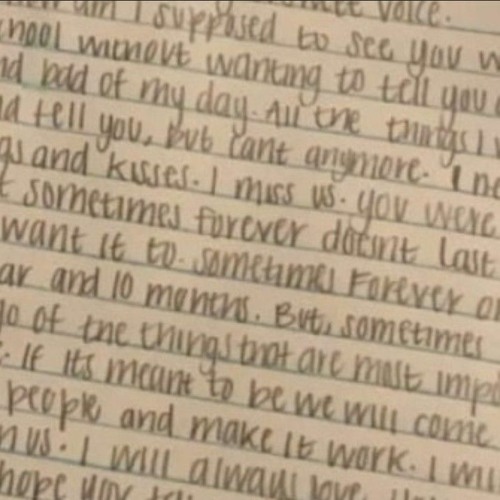 am I supposed to see you w
hool without wanting to tell you
nd bad of my day. All the things I w
nd tell you, but cant anymore. I n
gs and kisses. I miss us. you were
t sometimes forever doesnt last
want it to. sometimes Forever on
ar and 10 months. But, sometimes
go of the things that are most imp
. If its meant to be we will come
people and make it work. I mi
n us. I will always love
hope you